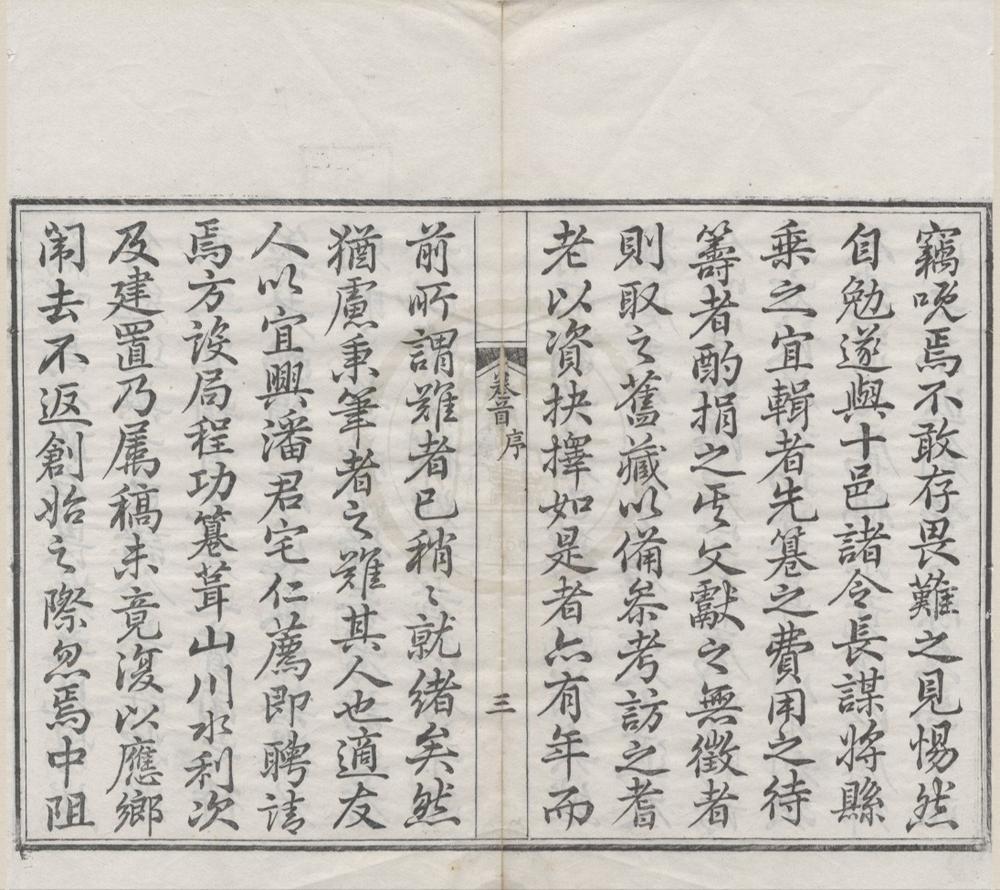 竊唴焉不敢存畏難之見惕然
自勉遂與十邑諸令長謀將縣
乘之宜輯者先篹之費用之待
籌者酌捐之其文獻之無徵者
則取之舊藏以備參考訪之耆
老以資抉擇如是者亦有年而
卷首 序
三
前所謂難者已稍〻就緒矣然
猶慮秉筆者之難其人也適友
人以宜興潘君宅仁薦即聘請
焉方設局程功篹葺山川水利次
及建置乃属稿未竟復以應鄉
闈去不返創始之際忽焉中阻